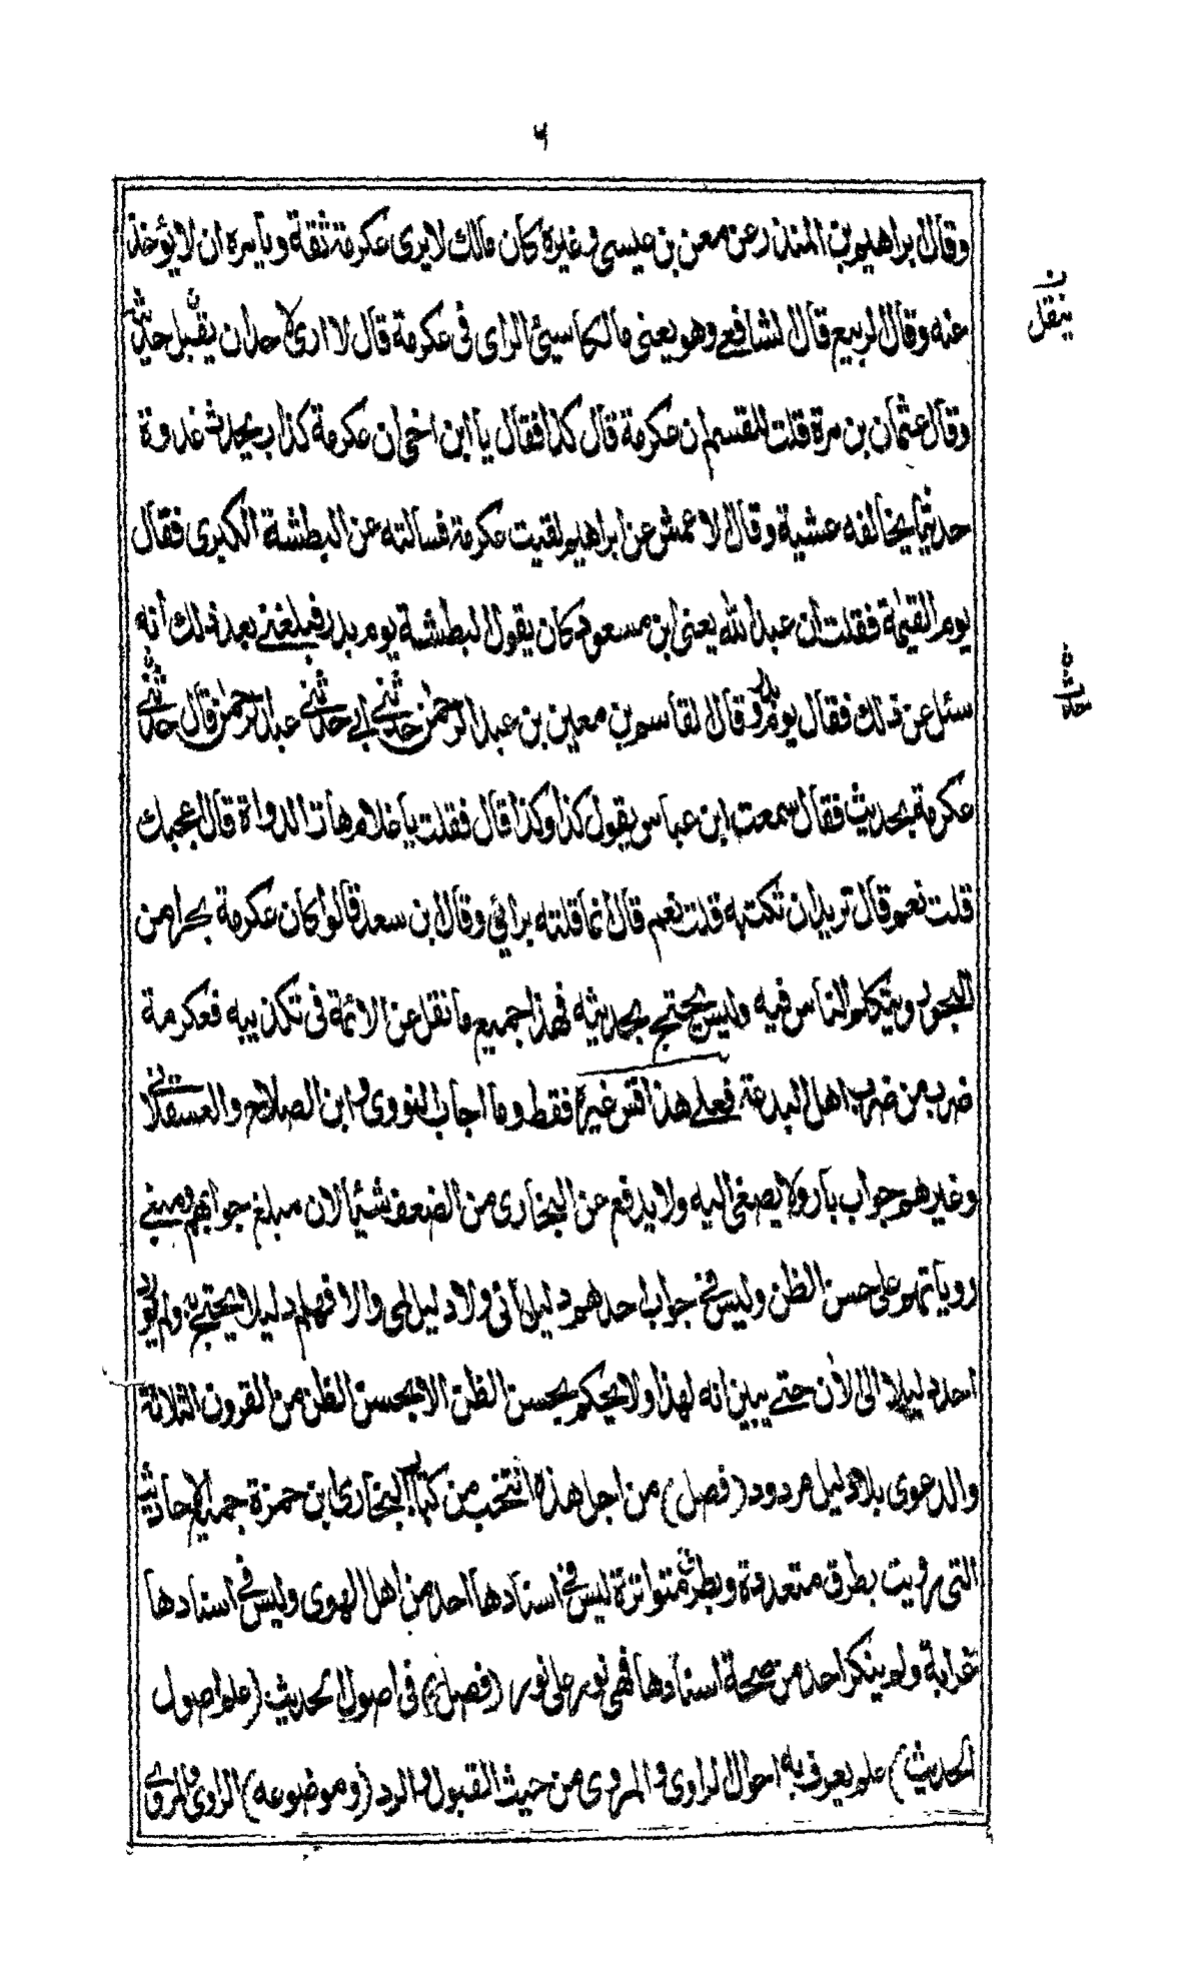 ٦
وقال ابراهيم بن المنذر عن معن بن عيسى وغيره كان مالك لا يرى عكرمة ثقة ويأمر ان لا يؤخذ
عنه وقال الربيع قال الشافعي وهو يعني مالكا سيئ الراى فى عكرمة قال لا ارى لاحد ان يقبل حديثه
وقال عثمان بن مرة قلت للقسم ان عكرمة قال كذا فقال يا ابن اخى ان عكرمة كذاب يحدث غدوة
حديثا يخالفه عشية وقال الاعمش عن ابراهيم لقيت عكرمة فسالته عن البطشة الكبرى فقال
يوم القيمة فقلت ان عبد الله يعنى ابن مسعود كان يقول البطشة يوم بدر فبلغنى بعد ذلك انه
سئل عن ذلك فقال يوم بدر وقال القاسم بن معين بن عبد الرحمن حدثنى ابى حدثنى عبد الرحمن قال حدثنى
عكرمة بحديث فقال سمعت ابن عباس يقول كذا وكذا قال فقلت يا غلام هات الدواة قال اعجبك
قلت نعم قال تريد ان تكتبه قلت نعم قال انما قلته برائي وقال ابن سعد قالوا كان عكرمة بحرا من
البحور ويتكلم الناس فيه وليس يحتج بحديثه فهذا جميع ما نقل عن الائمة فى تكذيبه فعكرمة
ضرب من ضرب اهل البدعة فعلى هذا قس غيره فقط وما اجاب النووى وابن الصلاح والعسقلانى
وغيرهم جواب بارد لا يصغى اليه ولا يدفع عن البخارى من الضعف شيئا لان مبلغ جوابهم ومبنى
روياتهم على حسن الظن وليس فى جواب احدهم دليل انى ولا دليل لمى والا فهلم دليلا يحتج به ولم يورد
احد دليلا الى الأن حتى يبين انه لهذا ولا يحكم بحسن الظن الا بحسن الظن من القرون الثلاثة
والدعوى بلا دليل مردود (فصل) من اجل هذه انتخب من كتاب البخارى ابن حمزة جميع الاحاديث
التى رويت بطرق متعددة وبطرق متواترة ليس فى اسنادها احد من اهل الهوى وليس فى اسنادها
غرابة ولم ينكر احد من صحة اسنادها فهى نور على نور (فصل) فى اصول الحديث (علم اصول
الحديث) علم يعرف به احوال الراوى والمروى من حيث القبول والرد (وموضوعه) الراوى والمروى
ينقل